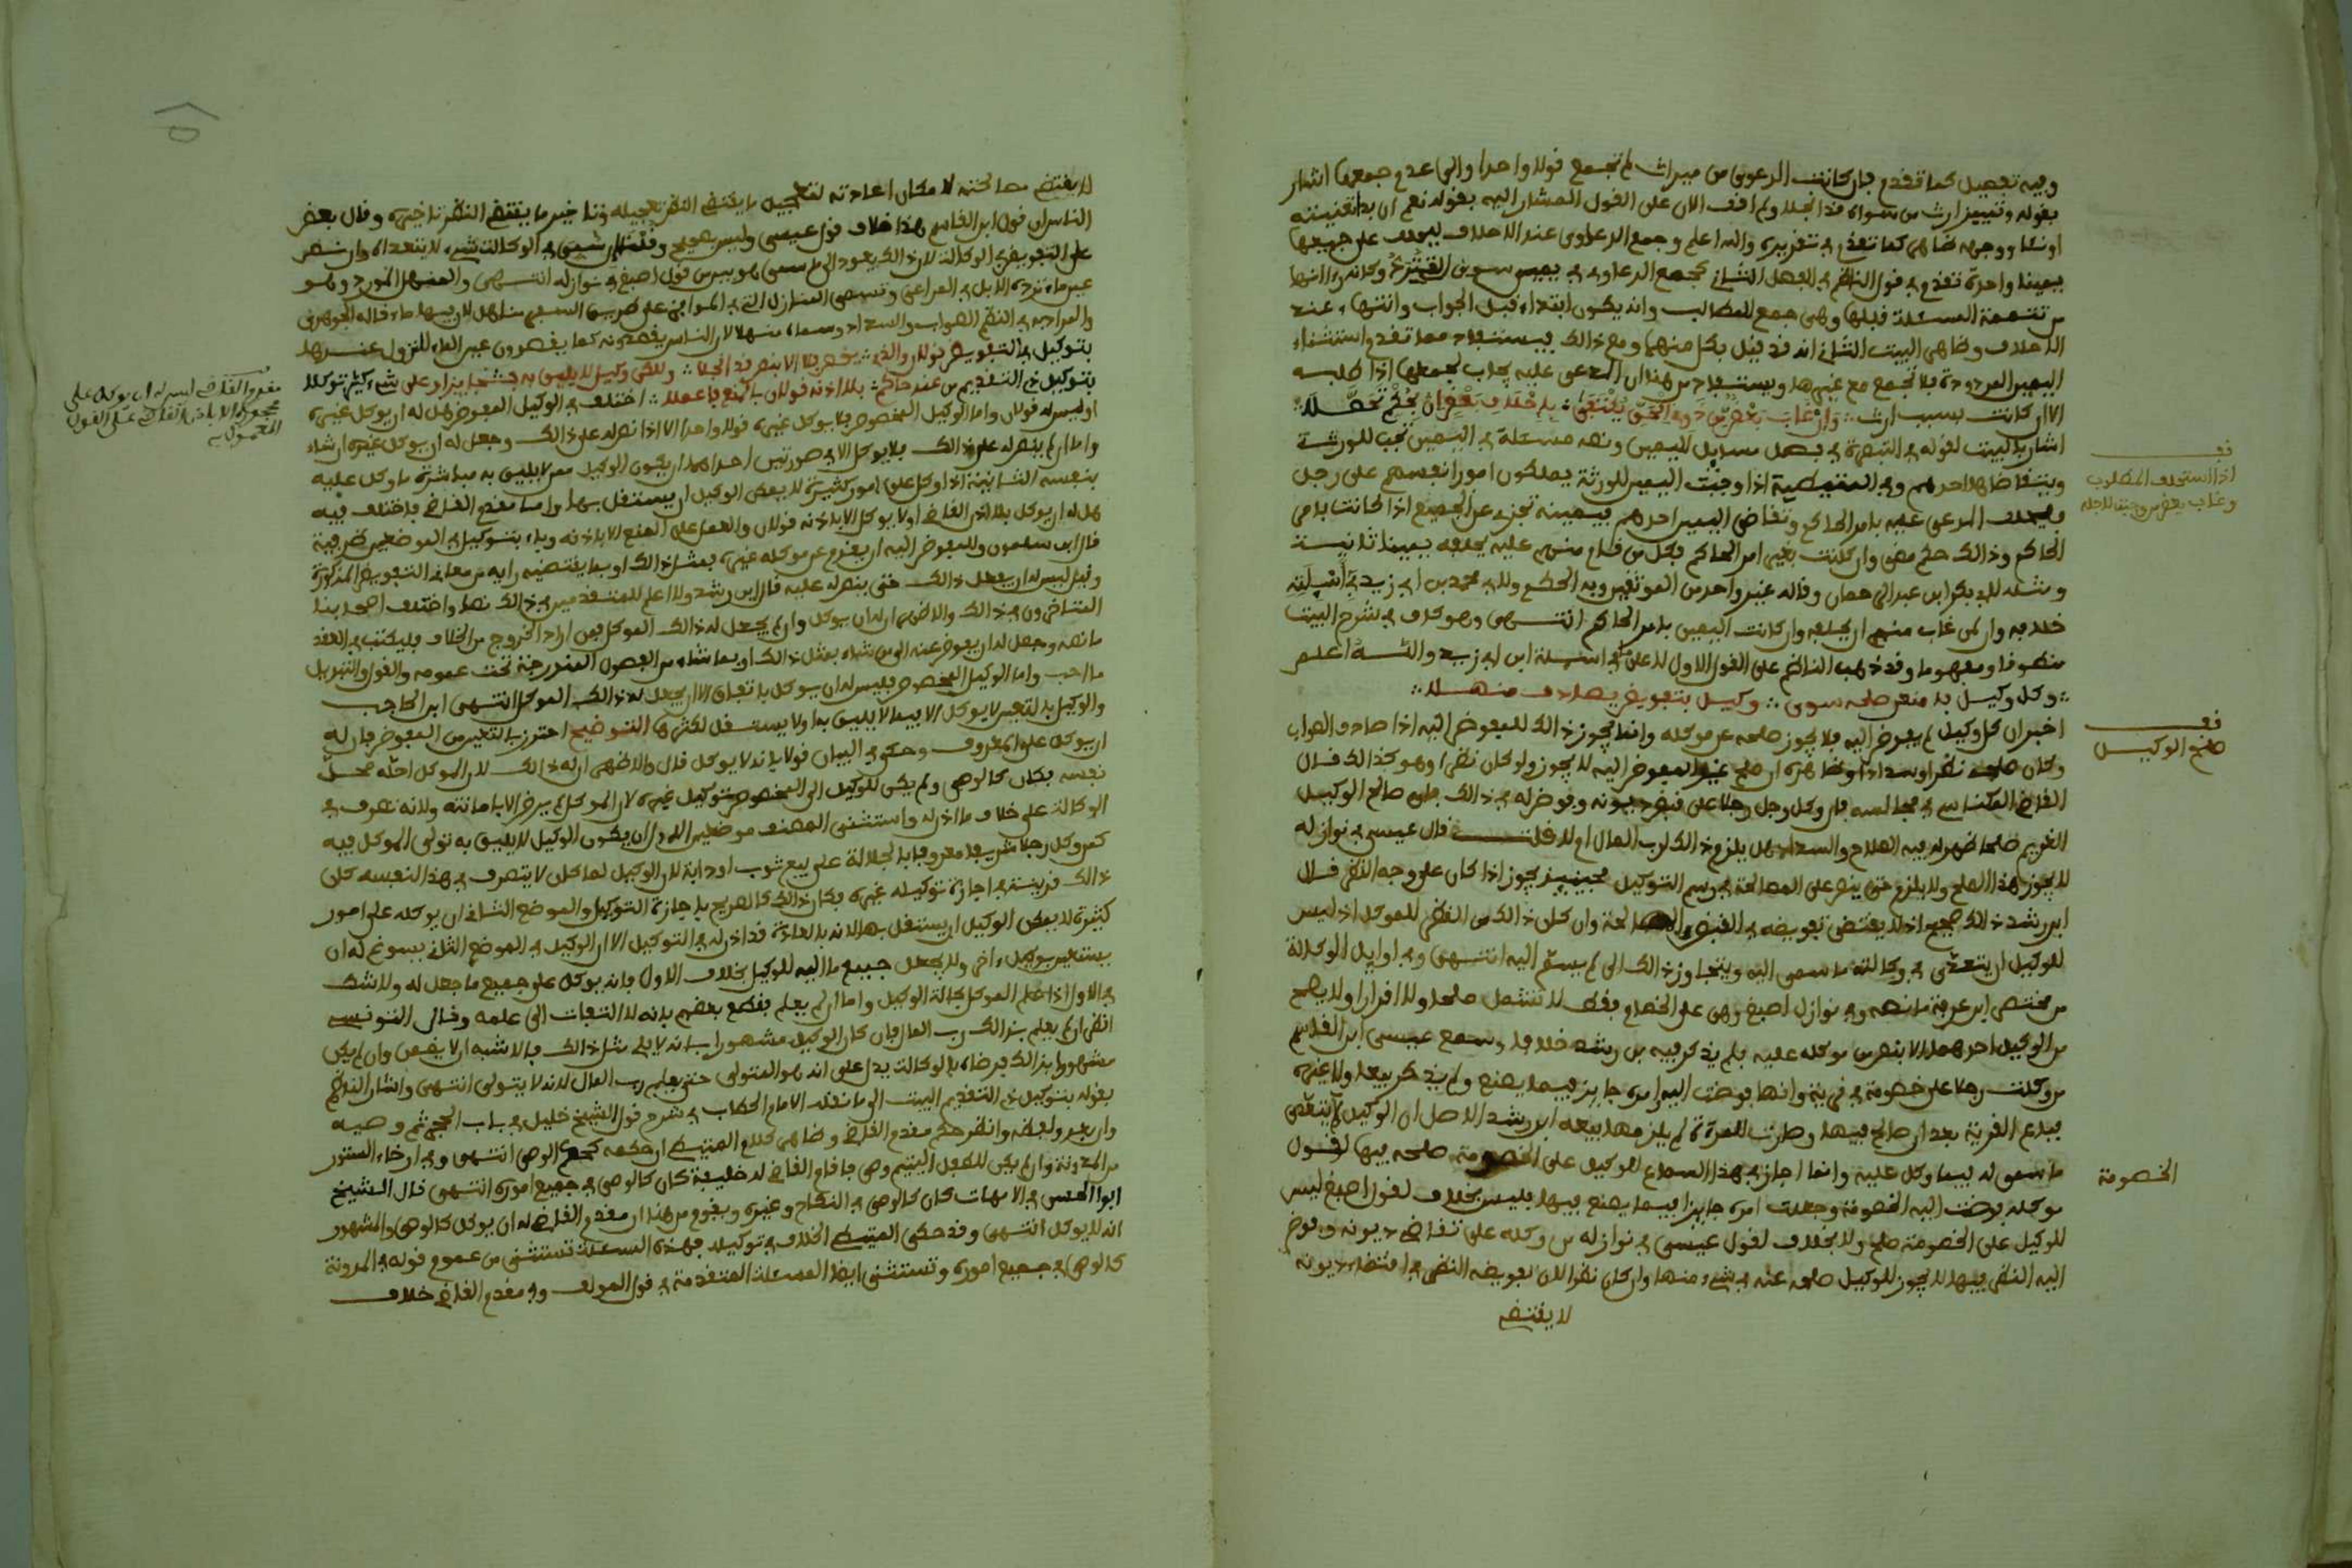 وفيه تفصيل كما تقدم فإن كانت الدعوى من ميراث لم تجمع قولا واحدا والى عدم جمعها اشار
بقوله وتمييز ارث من سواه قد انجلا ولم اقف الان على القول المشار اليه بقوله نعم ان بدا تعنيته
يمينا واحدة تقدم في قول الناظم في الفصل الثاني تجمع الدعاوى في يمين سوى
من تتمة المسئلة قبلها وهي جمع المطالب وانه يكون ابتداء قبل الجواب وانتهاء عند
الاحلاف وظاهر البيت الثاني انه قد قيل بكل منهما ومع ذالك فيستفاد مما تقدم واستثناء
اليمين المردودة فلا تجمع مع غيرها ويستفاد من هذا ان المدعى عليه يجاب لجمعها اذا طلبه
الا ان كانت بسبب ارث
اشار بالبيت لقوله في التبصرة في فصل مسايل اليمين ونصه مسئلة في اليمين تجب للورثة
ويتقاضاها احدهم وفي المتيطية اذا وجبت اليمين للورثة يملكون امور انفسهم على رجل
فيحلف المدعى عليه بامر الحاكم وتقاضى اليمين احدهم فيمينه تجزء عن الجميع اذا كانت بامر
الحاكم وذالك حكم مضى وان كانت بغير امر الحاكم فكل من قام منهم عليه يحلفه يمينا ثانية
ومثله لابي بكر ابن عبد الرحمان وقاله غير واحد من الموثقين وبه الحكم ولابي محمد بن ابي زيد في اسئلته
خلافه وان لمن غاب منهم ان يحلفه وان كانت اليمين بامر الحاكم انتهى وهو كلاف في شرح البيت
منطوقا ومفهوما وقد ذهب الناظم على القول الاول لا على ما في اسئلة ابن ابي زيد والله اعلم
وكل وكيل بد منعن صلحه سوى وكيل بتفويض يصادف منهلا
اخبر ان كل وكيل لم يفوض اليه فلا يجوز صلحه عن موكله وانما يجوز ذالك للمفوض اليه اذا صادف الصواب
وكان صلحه نظرا وسدادا وظاهره ان صلح غير المفوض اليه لا يجوز ولو كان نظرا وهو كذالك قال
القاضي المكناسي في مجالسه فان وكل رجل رجلا على قبض ديونه وفوض له في ذالك فان صالح الوكيل
الغريم صلحا ظهر له فيه الصلاح والسداد هل يلزم ذالك رب المال او لا قلت قال عيسى في نوازله
لا يجوز هذا الصلح ولا يلزم حتى ينص على المصالحة في رسم التوكيل فحينيذ يجوز اذا كان على وجه النظر قال
ابن رشد ذالك صحيح اذ لا يقتضي تفويضه في القبض المصالحة وان كان ذالك من النظر للموكل اذ ليس
للوكيل ان يتعدى في وكالته ما سمى اليه ويتجاوز ذالك الى ما لم يسم اليه انتهى وفي اوايل الوكالة
من مختصر ابن عرفة ما نصه وفي نوازل اصبغ وهى على الخصام فقط لا تشمل صلحا ولا اقرارا ولا يصح
من الوكيل احدهما الا بنص من موكله عليه فلم يذكر فيه بن رشد خلافا وسمع عيسى ابن القاسم
من وكلت رجلا على خصومة في قرية وانها فوضت اليه امره جايز فيما يصنع ولم يذكر بيعا ولا غيره
فباع القرية بعد ان صالح فيها وطرت للمرأة لم يلزمها بيعه ابن رشد الاصل ان الوكيل لا يتعدى
ما سمى له فيما وكل عليه وانما اجاز في هذا السماع للوكيل على الخصومة صلحه فيها لقول
موكله فوضت اليه الخصومة وجعلت امره جايزا فيما يصنع فيها فليس بخلاف لقول اصبغ ليس
للوكيل على الخصومة صلح ولا بخلاف لقول عيسى في نوازله من وكله على تقاضي ديونه وفوض
اليه النظر فيها لا يجوز للوكيل صلحه عنه في شيء منها وان كان نظرا لان تفويضه النظر في اقتضاء ديونه
لا يقتضي
اذا استحلف المطلوب
وغاب بعض من وجبت لاجله
قف
صلح الوكيل
الخصومة
لا يقتضي مصالحته لا مكان اعادته لتعجيل ما يقتضي النظر تعجيله وتاخير ما يقتضي النظر تاخيره وقال بعض
الناس ان قول ابن القاسم هذا خلاف قول عيسى وليس بصحيح
على التفويض في الوكالة لان ذالك يعود الى ما سمى وهو بين من قول اصبغ في نوازله انتهى والمنهل المورد وهو
عين ماء ترده الابل في المراعي وتسمى المنازل التي في المواضع على طريق السفر مناهل لان فيها ماء قاله الجوهري
والمراد به في النظم الصواب والسداد وسماه منهلا لان الناس يقصدونه كما يقصدون عين الماء للنزول عندها
او ليس له قولان واما الوكيل المخصوص فلا يوكل غيره قولا واحدا الا اذا نص له على ذالك وجعل له ان يوكل غيره ان شاء
واما ان لم ينص له على ذالك فلا يوكل الا في صورتين احداهما ان يكون الوكيل ممن لا يليق به مباشرة ما وكل عليه
بنفسه الثانية اذا وكل على امور كثيرة لا يمكن الوكيل ان يستقل بها واما مقدم القاضي فاختلف فيه
هل له ان يوكل بلا اذن القاضي او لا يوكل الا باذنه قولان والعمل على المنع الا باذنه وباء بتوكيل في الموضعين ظرفية
قال ابن سلمون وللمفوض اليه ان يقدم عن موكله غيره بمثل ذالك او بما يقتضيه رايه من معاني التفويض المذكورة
وقيل ليس له ان يفعل ذالك حتى ينص له عليه قال ابن رشد ولا اعلم للمتقدمين في ذالك نصا واختلف اصحابنا
المتاخرون في ذالك والاظهر ان له ان يوكل وان لم يجعل له ذالك الموكل فمن اراد الخروج من الخلاف فليكتب في العقد
ما نصه وجعل له ان يفوض عنه الى من شاء بمثل ذالك او بما شاء من الفصول المندرجة تحت عمومه والعزل والتبديل
ما احب واما الوكيل المخصوص فليس له ان يوكل باتفاق الا ان يجعل له ذالك الموكل انتهى ابن الحاجب
والوكيل بالتعيين لا يوكل الا فيما لا يليق به او لا يستقل لكثرته التوضيح احترز بالتعيين من المفوض فان له
ان يوكل على المعروف وحكى في البيان قولا بانه لا يوكل قال والاظهر ان له ذالك لان الموكل احله محل
نفسه فكان كالوصي ولم يكن للوكيل المخصوص توكيل غيره لان الموكل لم يرض الا بامانته ولانه تصرف في
الوكالة على خلاف ما اذن له واستثنى المصنف موضعين الاول ان يكون الوكيل لا يليق به تولى الموكل فيه
كمن وكل رجلا شريفا معروفا بالجلالة على بيع ثوب او دابة لان الوكيل لما كان لا يتصرف في هذا لنفسه كان
ذالك قرينة في اجازة توكيله غيره فكان ذالك كالصريح باجازة التوكيل والموضع الثاني ان يوكله على امور
كثيرة لا يمكن الوكيل ان يستقل بها لانه بالعادة قد اذن له في التوكيل الا ان الوكيل في الموضع الثاني يسوغ له ان
يستعين بوكيل اخر ولا يجعل جميع ما اليه للوكيل بخلاف الاول فانه يوكل على جميع ما جعل له ولا شك
في الاول اذا علم الموكل بجلالة الوكيل واما ان لم يعلم فقطع بعضهم بانه لا التفات الى علمه وقال التونسي
انظر ان لم يعلم بذالك رب المال فان كان الوكيل مشهورا بانه لا يلي مثل ذالك فالاشبه ان لا يضمن وان لم يكن
مشهورا بذالك فرضاه بالوكالة يدل على انه هو المتولي حتى يعلم رب المال لانه لا يتولى انتهى واشار الناظم
بقوله بتوكيل ذي التقديم البيت الى ما نقله الامام الحطاب في شرح قول الشيخ خليل في باب الحجر ثم وصيه
وان بعد ولفظه وانظر حكم مقدم القاضي وظاهر كلام المتيطي ان حكمه كحكم الوصي انتهى وفي ارخاء الستور
من المدونة وان لم يكن للطفل اليتيم وصي فاقام القاضي له خليفة كان كالوصي في جميع اموره انتهى قال الشيخ
ابوا الحسن في الامهات كان كالوصي في النكاح وغيره ويقوم من هذا ان مقدم القاضي له ان يوكل كالوصي والمشهور
انه لا يوكل انتهى وقد حكى المتيطي الخلاف في توكيله فهذه المسئلة تستثنى من عموم قوله في المدونة
كالوصي في جميع اموره وتستثنى ايضا المسئلة المتقدمة في قول المولف وفي مقدم القاضي خلاف
مقدم القاضي ليس له ان يوكل على
محجوره الا باذن القاضي على القول
المعمول به